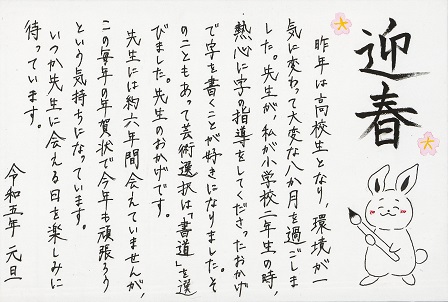 迎春
昨年は高校生となり、環境が一
気に変わって大変な八か月を過ごしま
した。先生が、私が小学校二年生の時、
熱心に字の指導をしてくださったおかげ
で字を書くことが好きになりました。そ
のこともあって芸術選択は「書道」を選
びました。先生のおかげです。
先生には約六年間会えていませんが、
この毎年の年賀状で今年も頑張ろう
という気持ちになっています。
いつか先生に会える日を楽しみに
待っています。
令和五年 元旦